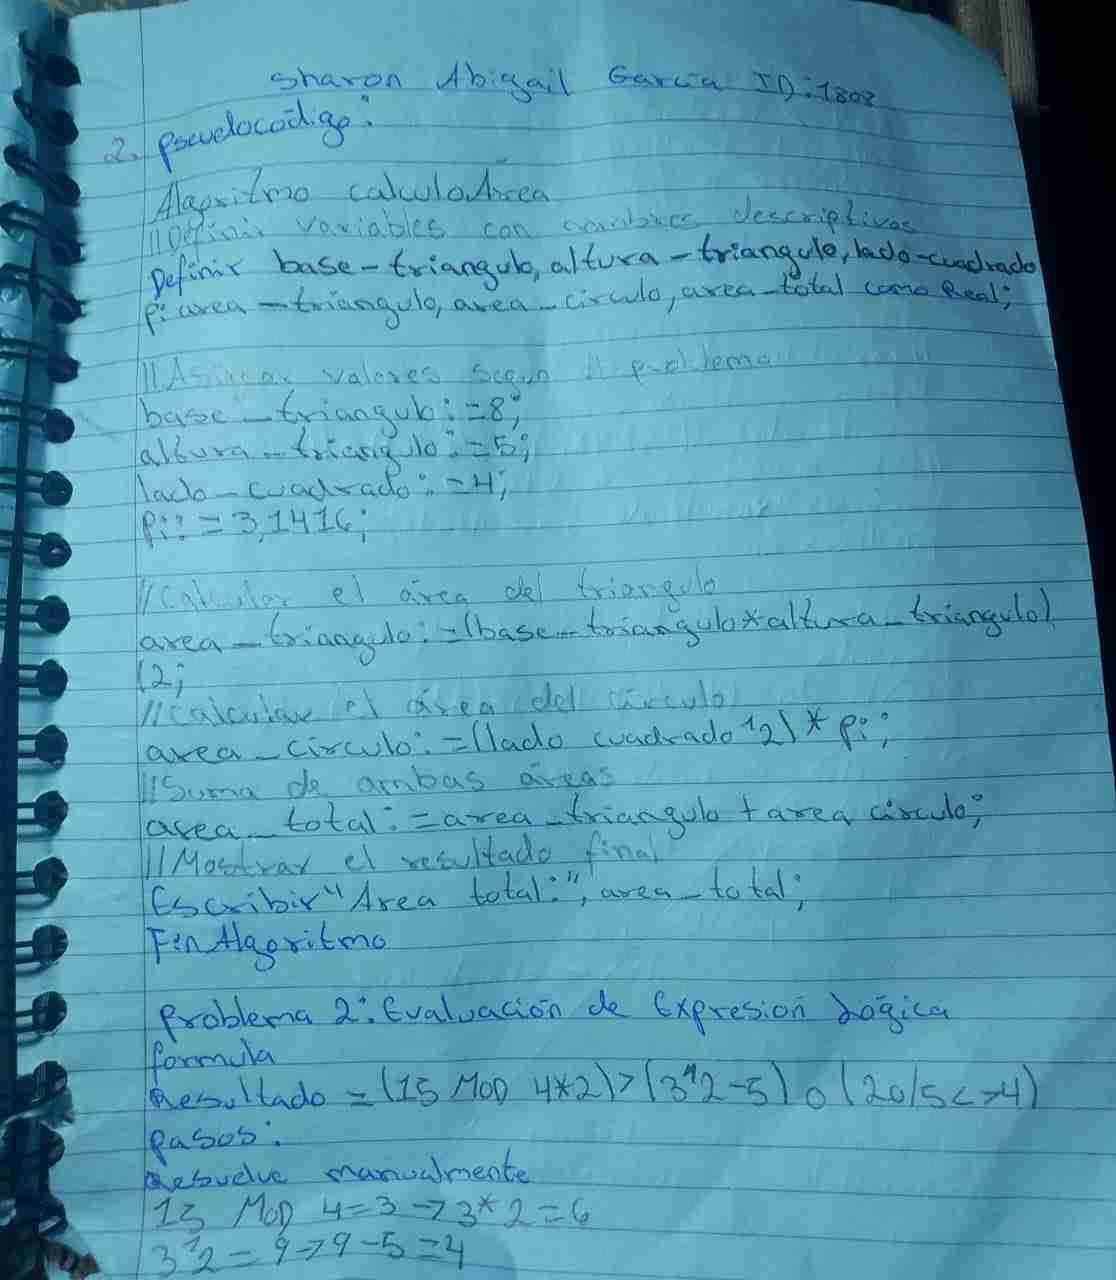 Sharon Abigail Garcia ID:1808
2. pseudocódigo:
Algoritmo calculoArea
//Definir variables con nombres descriptivos
Definir base-triangulo, altura-triangulo, lado-cuadrado
pi area-triangulo, area-circulo, area-total como Real;
//Asignar valores segun el problema
base-triangulo:=8;
altura-triangulo:=5;
lado-cuadrado:=4;
pi:=3,1416;
//Calcular el área del triangulo
area-triangulo:=(base-triangulo*altura-triangulo)
/2;
//Calcular el área del círculo
area-circulo:=(lado cuadrado^2)*pi;
//Suma de ambas áreas
area-total:=area-triangulo + area circulo;
//Mostrar el resultado final
Escribir "Area total:", area-total;
FinAlgoritmo
problema 2: Evaluación de Expresion Lógica
formula
Resultado = (15 MOD 4*2)>(3^2-5) o (20/5<>4)
pasos:
Resuelve manualmente
15 MOD 4=3→3*2=6
3^2=9→9-5=4